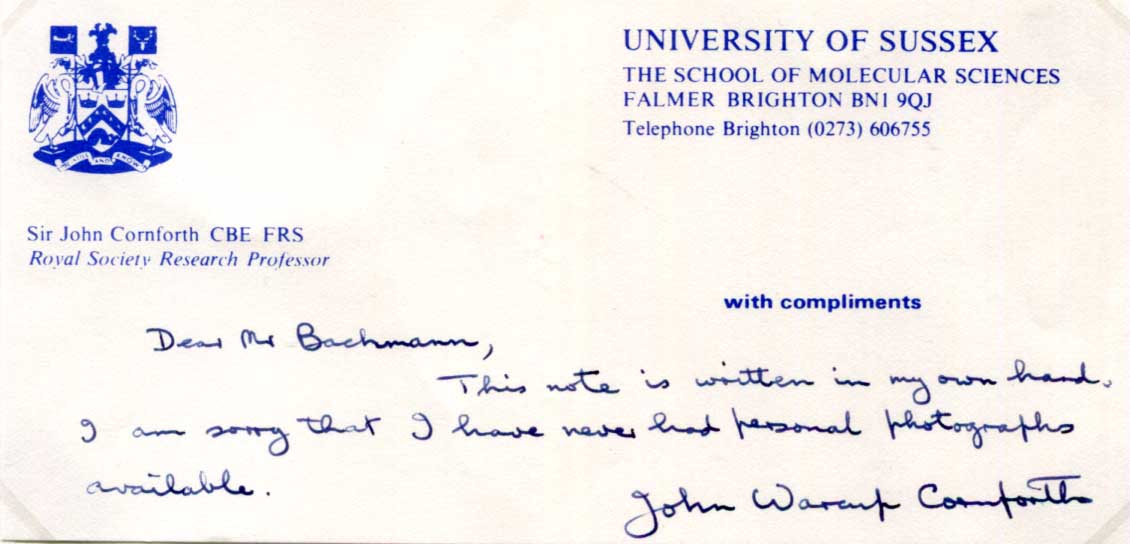 UNIVERSITY OF SUSSEX
THE SCHOOL OF MOLECULAR SCIENCES
FALMER BRIGHTON BN1 9QJ
Telephone Brighton (0273) 606755
Sir John Cornforth CBE FRS
Royal Society Research Professor
with compliments
Dear Mr Bachmann,
This note is written in my own hand.
I am sorry that I have never had personal photographs
available.
John Warcup Cornforth